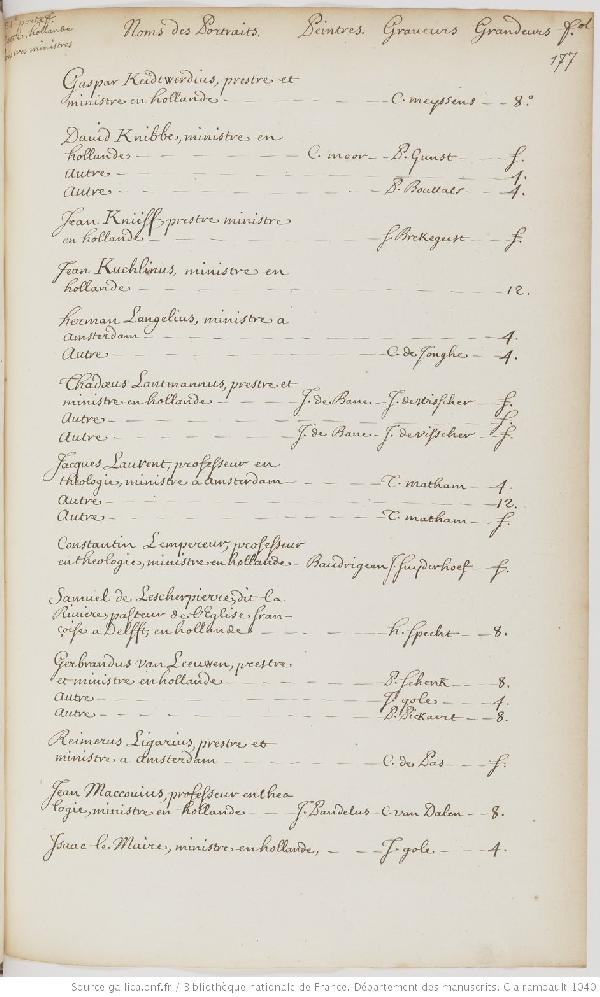 Noms des Portraits. Peintres. Graveurs Grandeurs f.ol
177
Gaspar Keidtwerdius, prestre et
ministre en hollande - C. meyssens - 8.°
David Knibbe, ministre en
hollande - C. moor - P. Gunst - f.
Autre - 4.
Autre - P. Bouttats - 4.
Jean Knüff, prestre ministre
en hollande - f. Brekegeest - f.
Jean Kuchlinus, ministre en
hollande - 12.
herman Langelius, ministre a
Amsterdam - 4.
Autre - C. de Jonghe - 4.
Thadœus Lantmannus, prestre et
ministre en hollande - J. de Bane - J. de visscher - f.
Autre - f.
Autre - J. de Bane - J. de visscher - f.
Jacques Laurent, professeur en
theologie, ministre a amsterdam - T. matham - 4.
Autre - 12.
Autre - T. matham - f.
Constantin Lempereur, professeur
en theologie, ministre en hollande - Baudrigeen J. suyderhoef - f.
Samuel de Lescherpierre, dit la
Riviere, pasteur de l'Eglise fran-
çoise a Delfft, en hollande - h. specht - 8.
Gerbrandus van Leeuwen, prestre
et ministre en hollande - P. schenk - 8.
Autre - J. gole - 4.
Autre - P. Pickaert - 8.
Reimerus Ligarius, prestre et
ministre a amsterdam - C. de Pas - f.
Jean Maccovius, professeur en theo
logie, ministre en hollande - J. Paudelus - C. van Dalen - 8.
Isaac le Maire, ministre en hollande, - J. gole - 4.
Source gallica.bnf.fr / Bibliothèque nationale de France. Département des manuscrits. Clairambault 1040